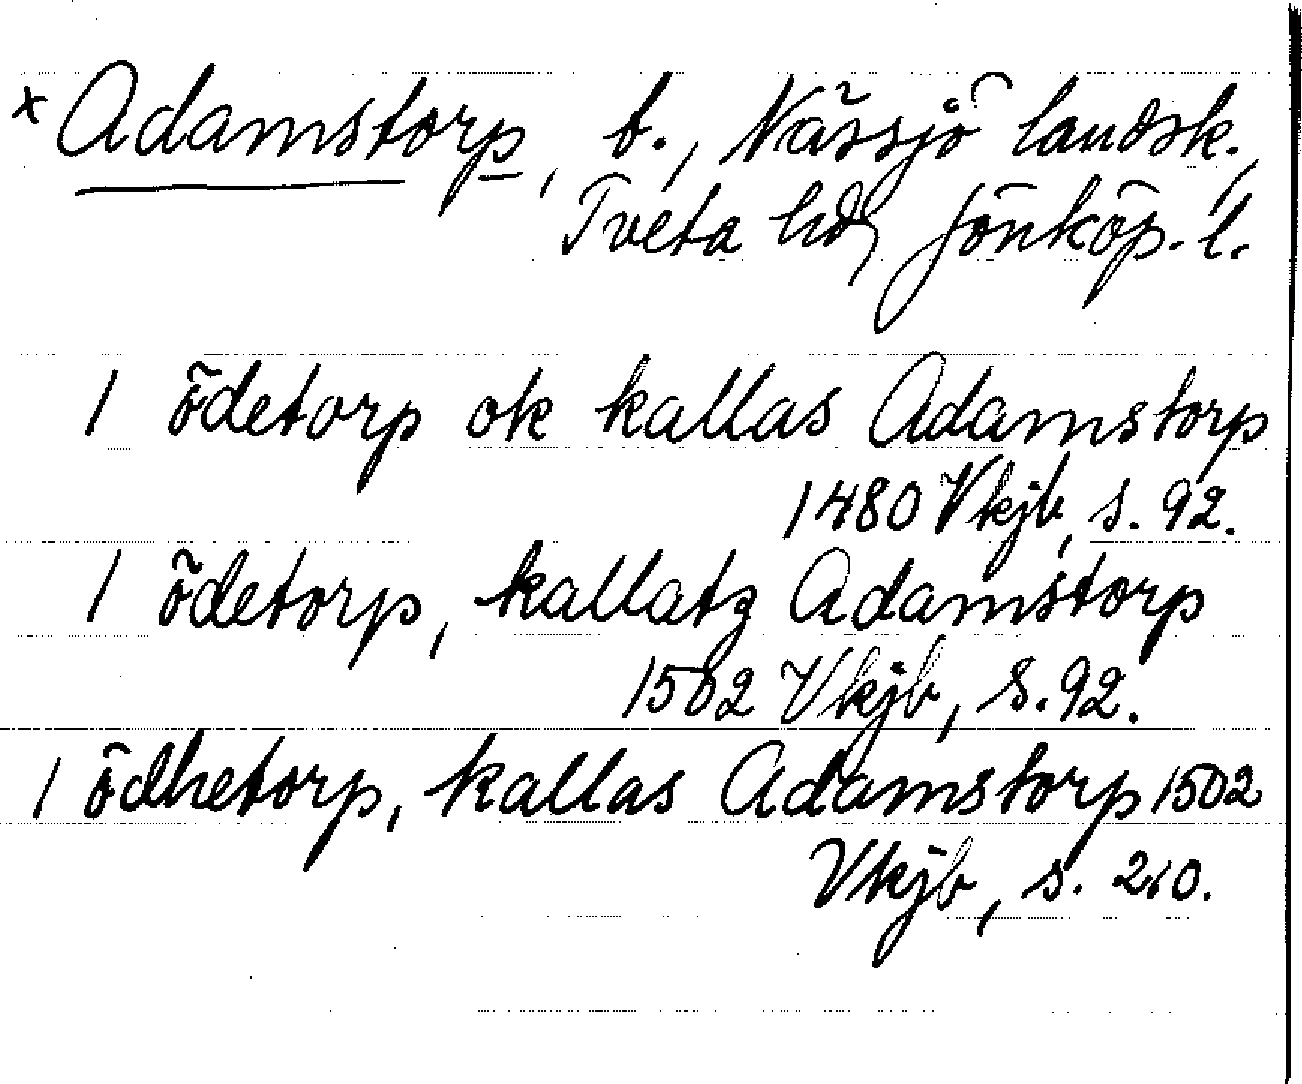 x Adamstorp, b., Nässjö landsk.,
Tveta hd, Jönköp. l.
1 ödetorp ok kallas Adamstorp
1480 Vkjb, s. 92.
1 ödetorp, kallatz Adamstorp
1502 Vkjb, s. 92.
1 ödhetorp, kallas Adamstorp 1502
Vkjb, s. 210.